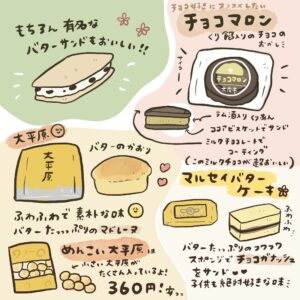 もちろん 有名な
バターサンドもおいしい!!
チョコ好きにオススメしたい
チョコマロン
くり餡入りのチョコの
おかし
チョコマロン
六花亭
ラム酒入りくりあん
ココアビスケットでサンド
ミルクチョコレートで
コーティング
(このミルクチョコが超おいしい)
大平原
大平原
バターのかおり
ふわふわで 素朴な味
バターたっっっぷりのマドレーヌ
めんこい大平原は
小さい大平原が
たくさん入っているよ!
360円!安っ
マルセイバター
ケーキ
ふわふわ
バターたっっっぷりのフワフワ
スポンジでチョコガナッシュ
をサンド
子供も絶対好きな味…